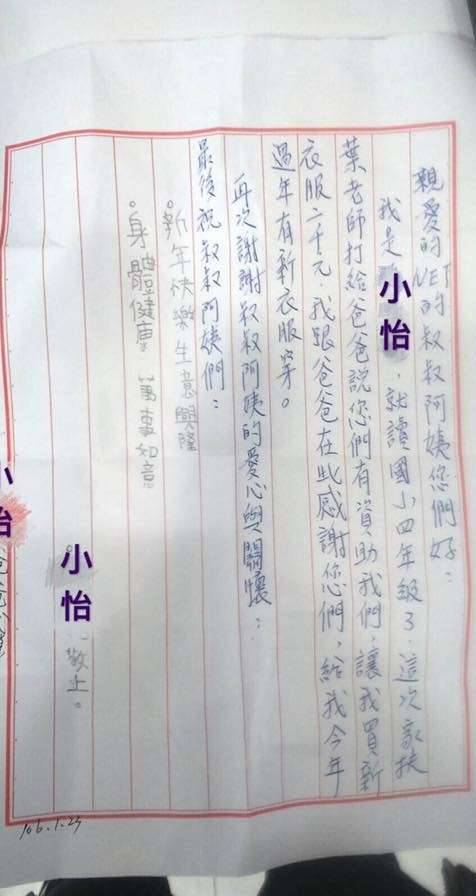 親愛的NET的叔叔阿姨您們好：
我是小怡，就讀國小四年級了，這次家扶
葉老師打給爸爸說您們有資助我們，讓我買新
衣服二千元，我跟爸爸在此感謝您們，給我今年
過年有新衣服穿。
再次謝謝叔叔阿姨的愛心與關懷：
最後祝叔叔阿姨們：
新年快樂生意興隆。
身體健康 萬事如意。
小怡 敬上。
小怡
106.1.24